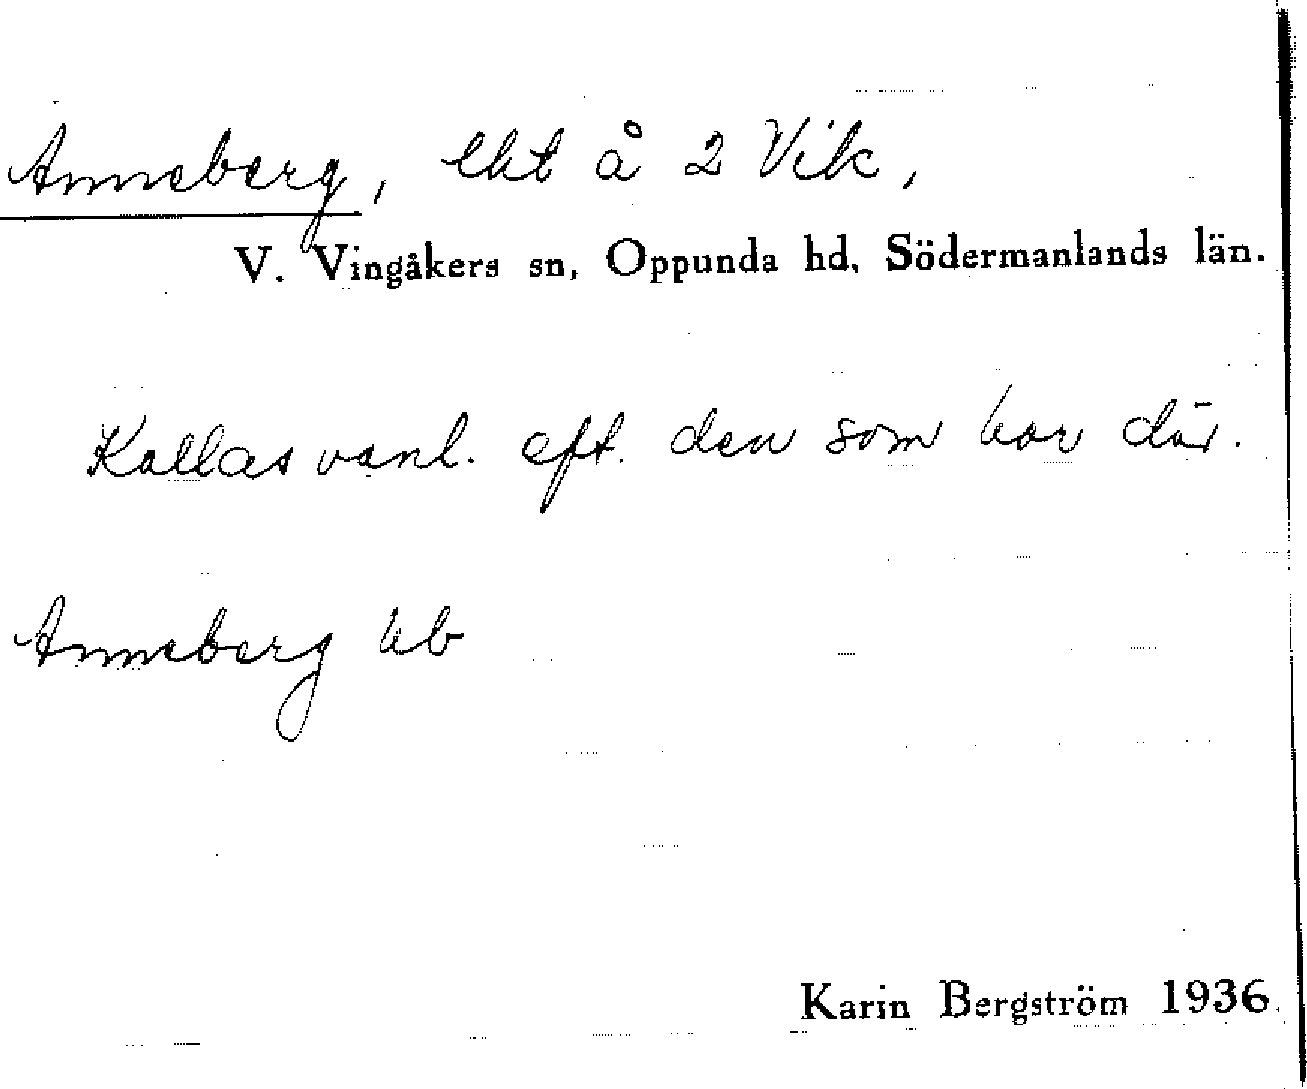 Anneberg, lht å 2 Vik,
V. Vingåkers sn, Oppunda hd, Södermanlands län.
Kallas vanl. eft. den som bor där.
Anneberg kb
Karin Bergström 1936.